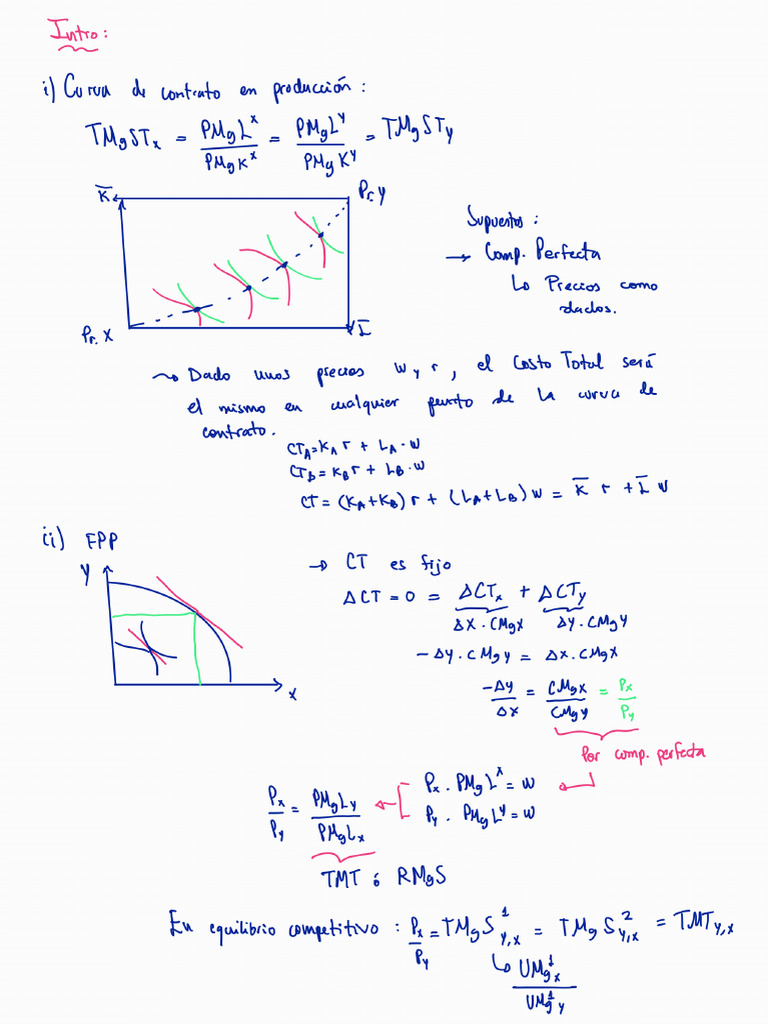 Intro:
i) Curva de contrato en producción:
TMgSTx = PMgL^x / PMgK^x = PMgL^y / PMgK^y = TMgSTy
K̄
Pr. Y
Pr. X
L̄
Supuestos:
→ Comp. Perfecta
↳ Precios como
dados.
⤳ Dado unos precios w y r, el Costo Total será
el mismo en cualquier punto de la curva de
contrato.
CT_A = K_A r + L_A · w
CT_B = K_B r + L_B · w
CT = (K_A + K_B) r + (L_A + L_B) w = K̄ r + L̄ w
ii) FPP
Y
x
→ CT es fijo
ΔCT = 0 = ΔCTx + ΔCTy
Δx · CMgX Δy · CMgY
-Δy · CMgy = Δx · CMgX
-Δy / Δx = CMgx / CMgy = Px / Py
Por comp. perfecta
Px · PMgL^x = w
Py · PMgL^y = w
Px / Py = PMgLy / PMgLx
TMT ó RMgS
En equilibrio competitivo: Px / Py = TMgS^1 y,x = TMgS^2 y,x = TMT y,x
↳ UMg^1 x / UMg^1 y